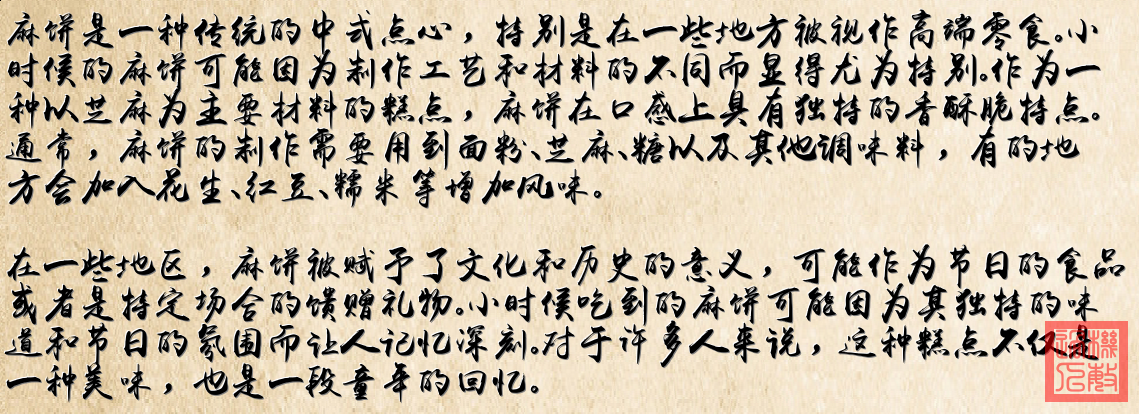 麻饼是一种传统的中式点心，特别是在一些地方被视作高端零食。小
时候的麻饼可能因为制作工艺和材料的不同而显得尤为特别。作为一
种以芝麻为主要材料的糕点，麻饼在口感上具有独特的香酥脆特点。
通常，麻饼的制作需要用到面粉、芝麻、糖以及其他调味料，有的地
方会加入花生、红豆、糯米等增加风味。
在一些地区，麻饼被赋予了文化和历史的意义，可能作为节日的食品
或者是特定场合的馈赠礼物。小时侯吃到的麻饼可能因为其独特的味
道和节日的氛围而让人记忆深刻。对于许多人来说，这种糕点不仅是
一种美味，也是一段童年的回忆。